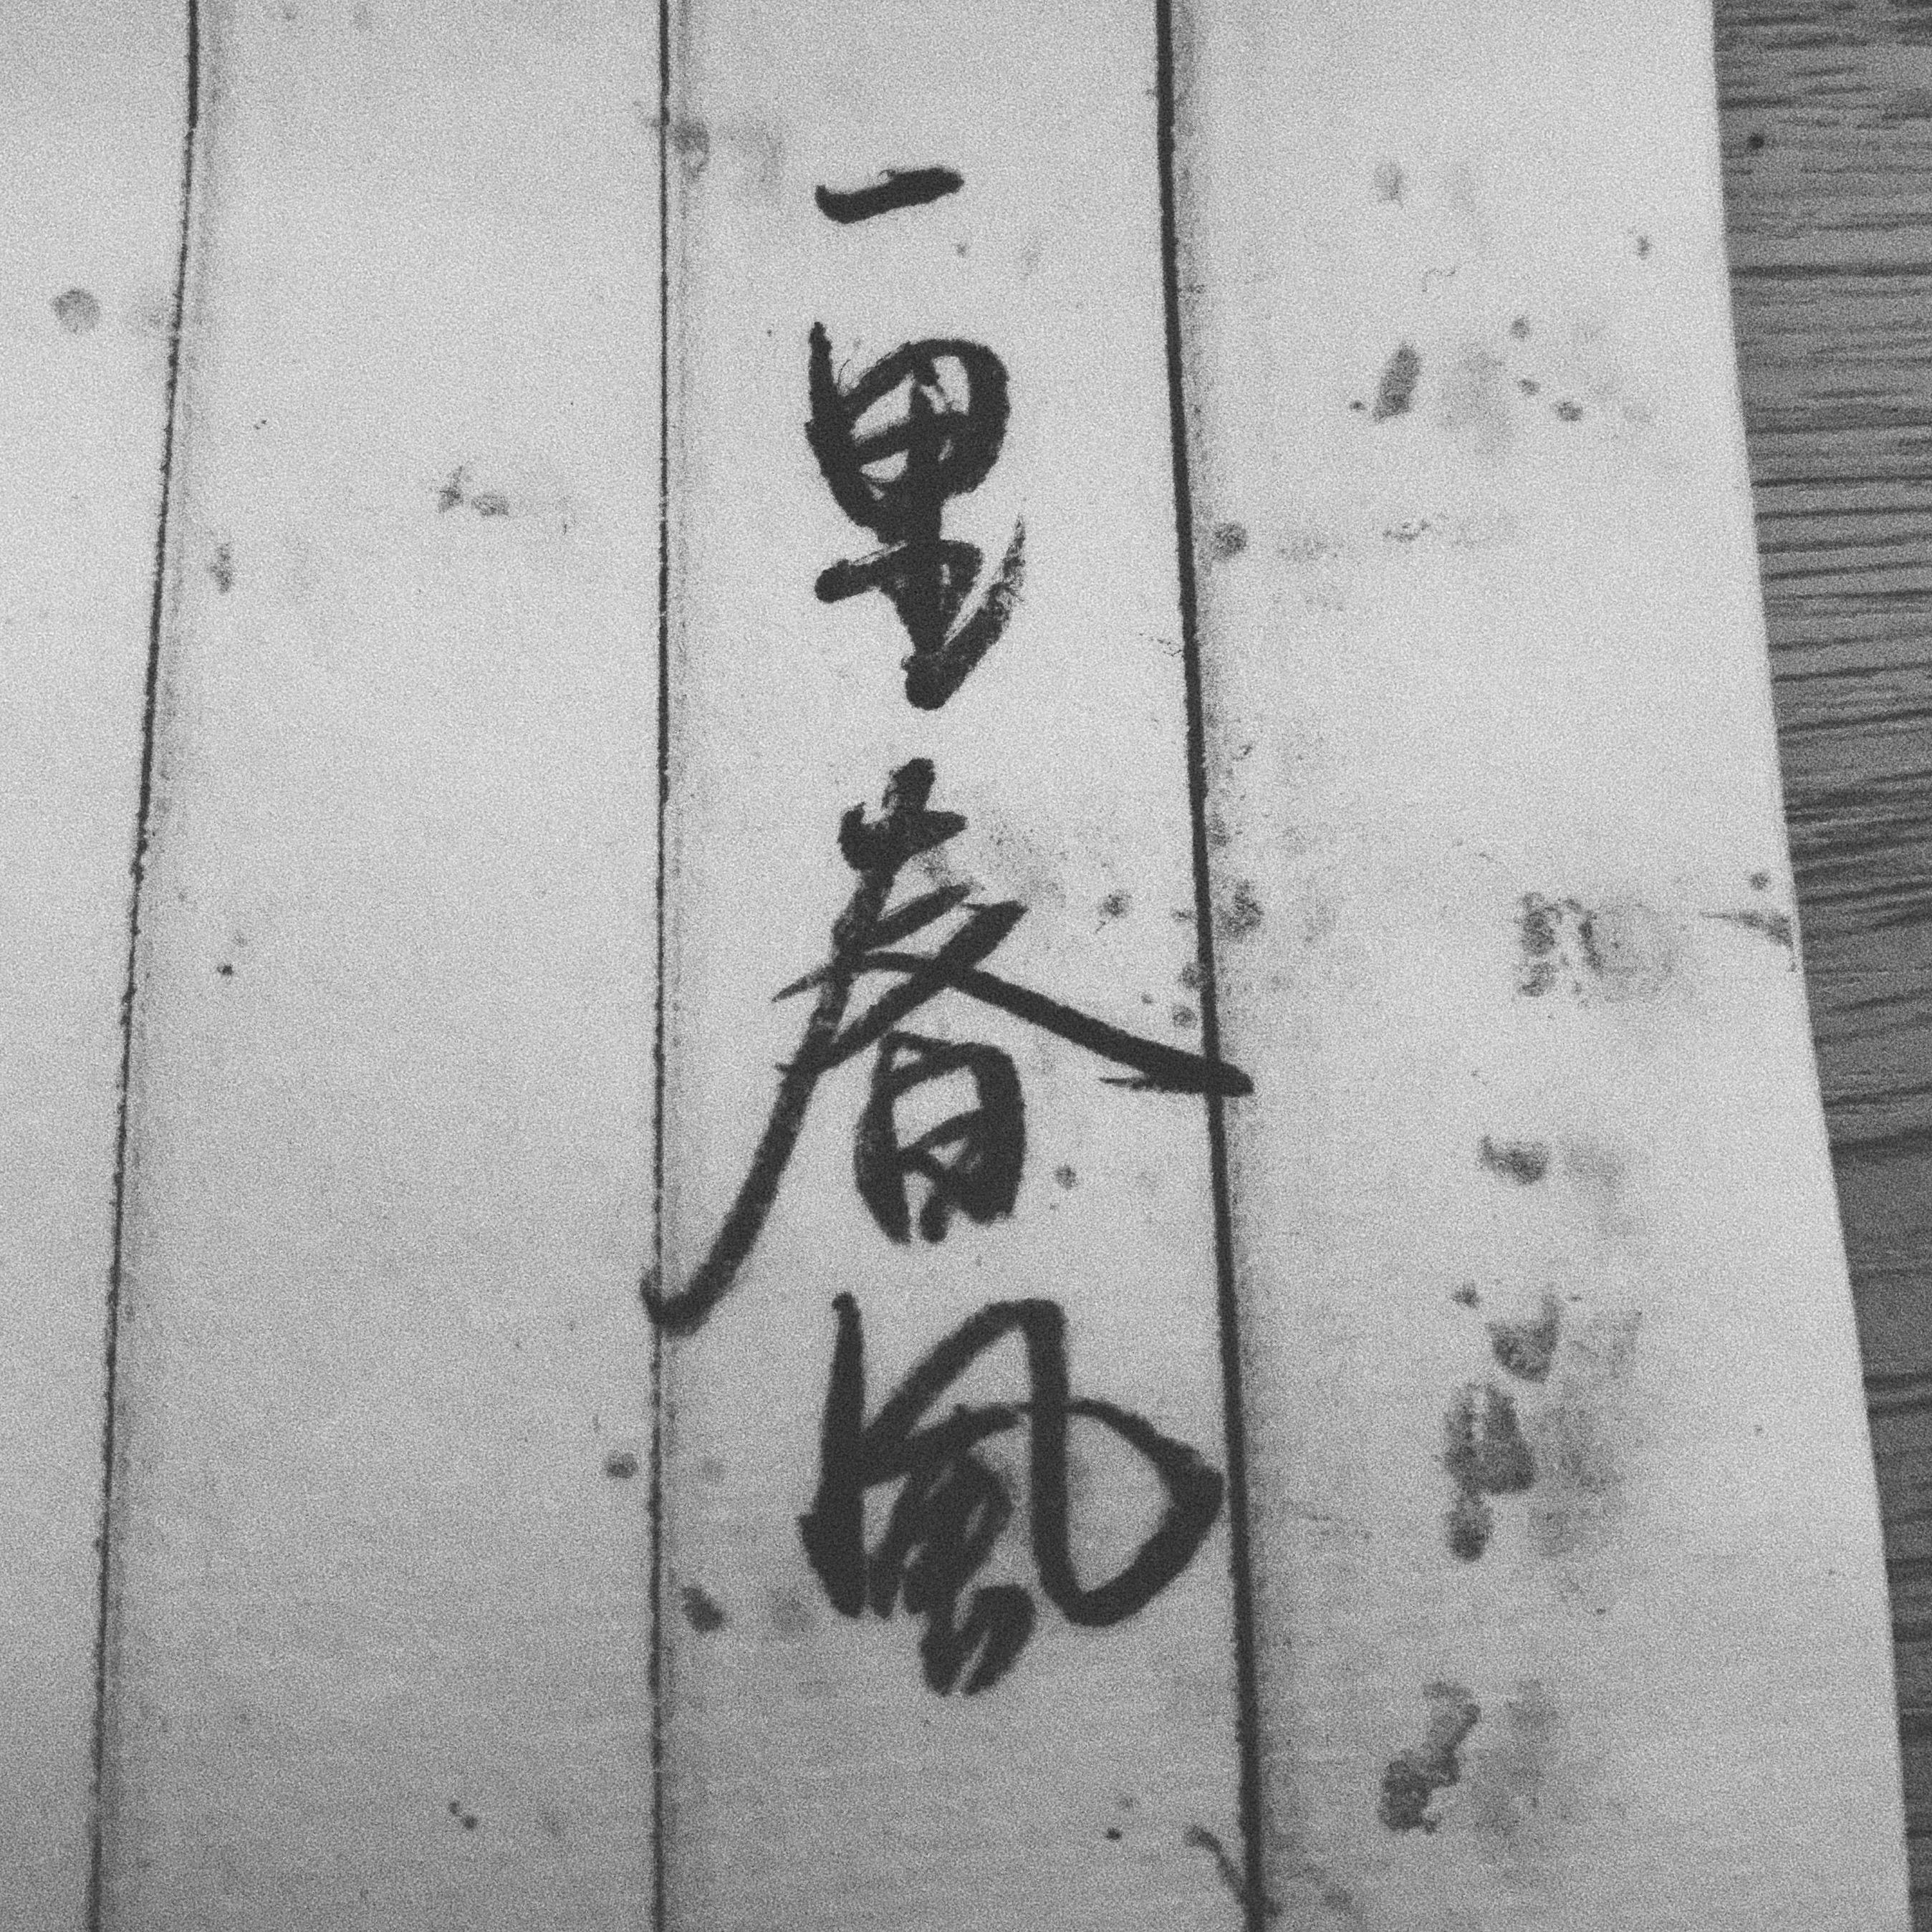 一里春風